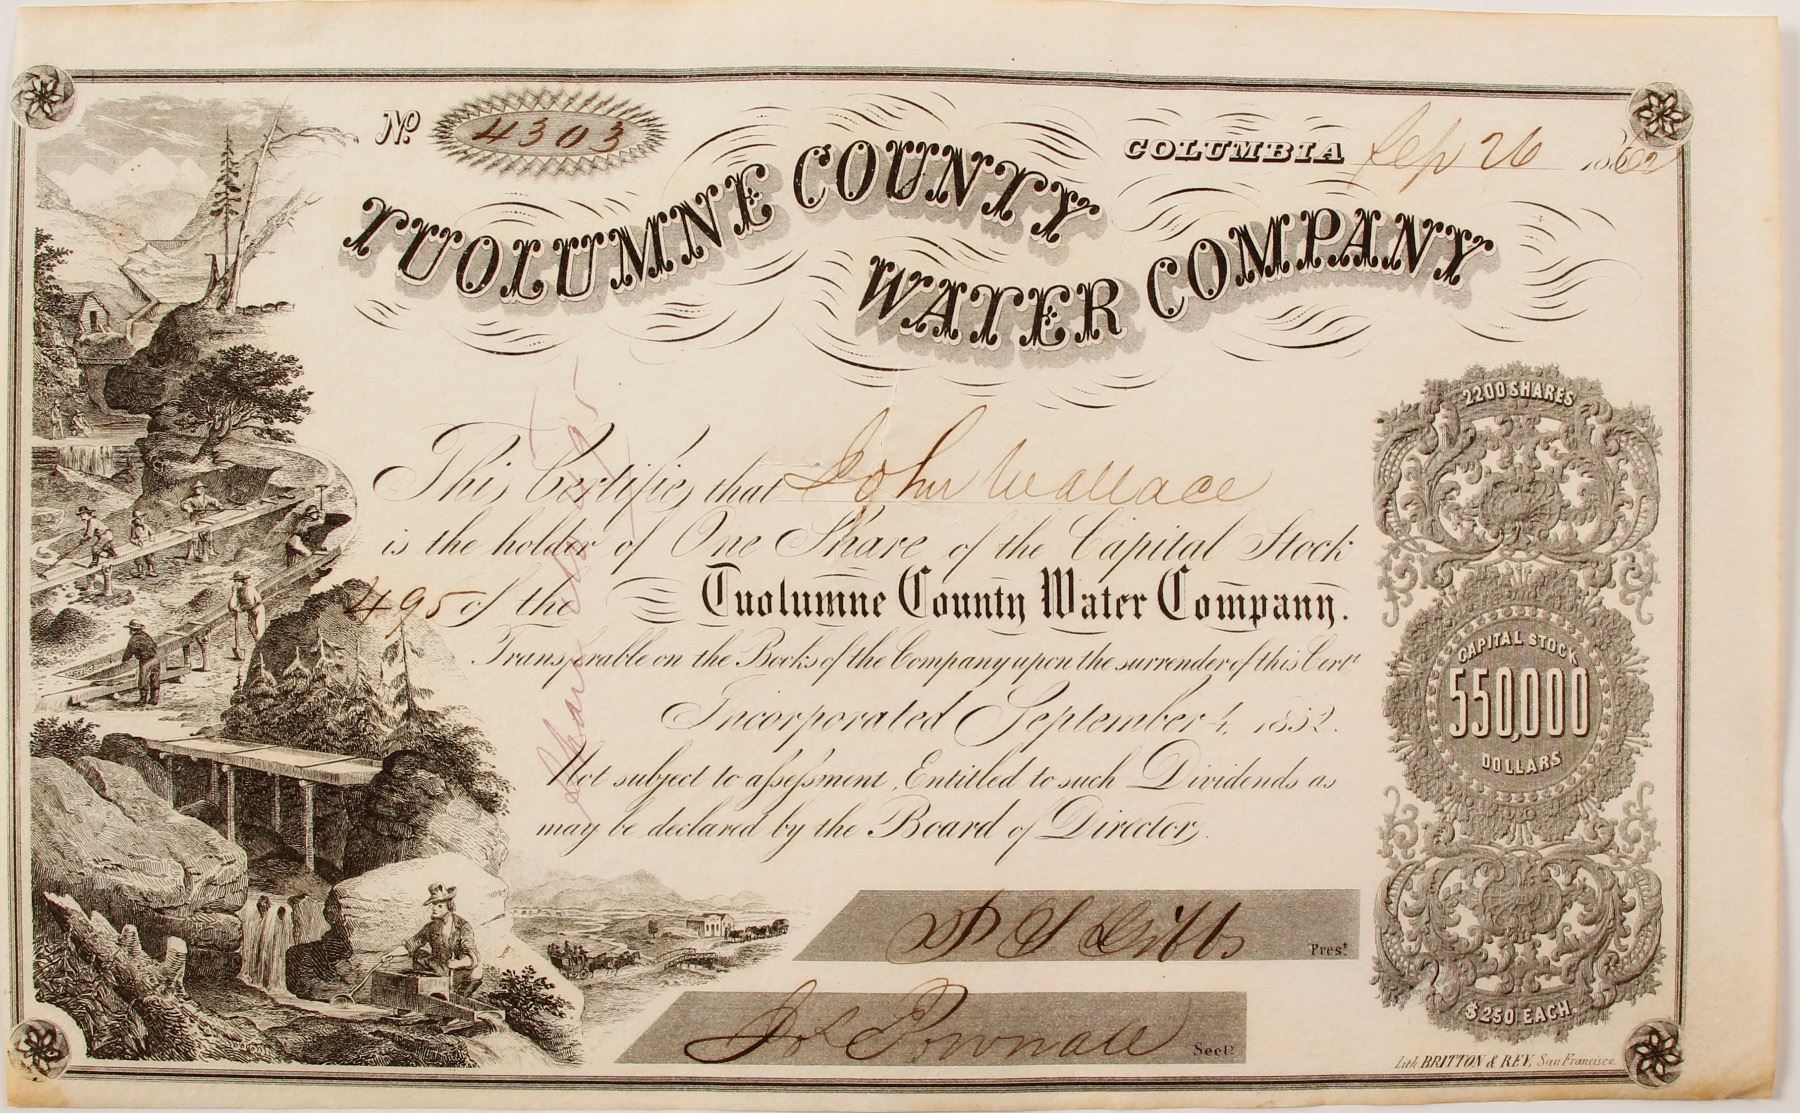 No. 4303
COLUMBIA Sep 26 1862
TUOLUMNE COUNTY
WATER COMPANY
This Certifies that John Wallace
is the holder of One Share of the Capital Stock
495 of the Tuolumne County Water Company.
Transferable on the Books of the Company upon the surrender of this Cert.
Incorporated September 4, 1852.
Not subject to assessment, Entitled to such Dividends as
may be declared by the Board of Directors.
2200 SHARES
CAPITAL STOCK
550,000
DOLLARS
$250 EACH
Gibbs Prest
Jos Pownall Secty
Lith. BRITTON & REY, San Francisco.